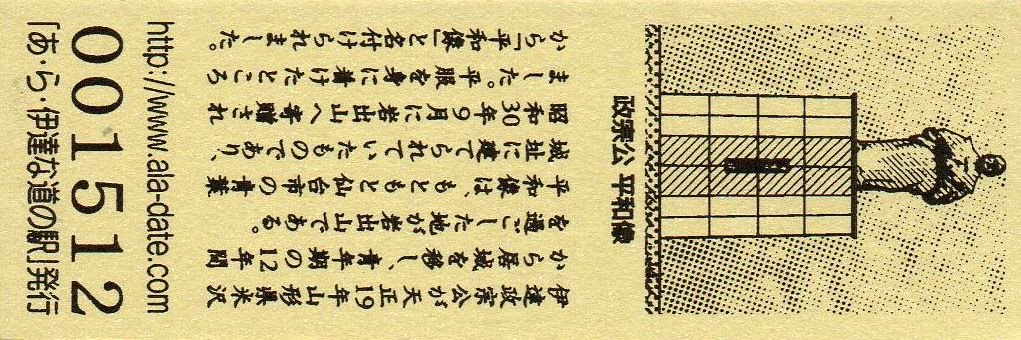 政宗公 平和像
伊達政宗公が天正19年山形県米沢
から居城を移し、青年期の12年間
を過ごした地が岩出山である。
平和像は、もともと仙台市の青葉
城址に建てられていたものであり、
昭和30年9月に岩出山へ寄贈され
ました。平服を身に着けたところ
から「平和像」と名付けられました。
http://www.ala-date.com
001512
「あ・ら・伊達な道の駅」発行